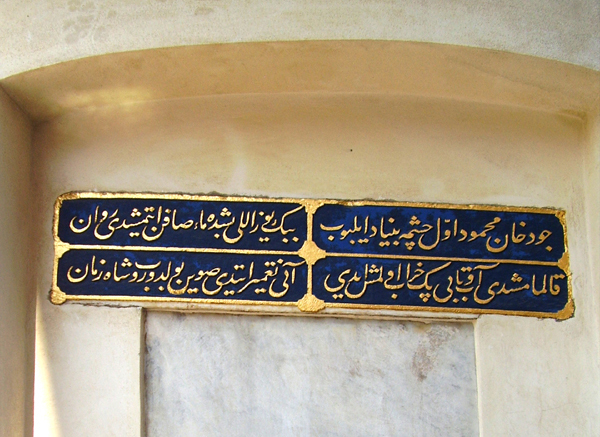 جود خان محمود اوّل چشمه بنیاد ایلیوب
بیك یوز اللی بشده ماء صافن ایتمشدی روان
قالمامشدی آب و تابی پك خراب اولمش ایدی
آنی تعمیر ایتدی صوین بولدوروب شاه زمان